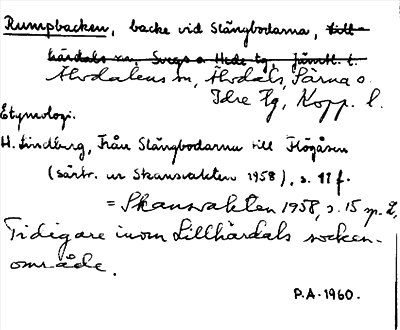 Rumpbacken, backe vid Slängbodarna, till-
härdals sn, Svegs o. Hede tg, Jämtl. l.
Älvdalens sn, Älvdals, Särna o.
Idre tg, Kopp. l.
Etymologi.
H. Lindberg, Från Slängbodarna till Högåsen
(särtr. ur Skansvakten 1958), s. 11 f.
= Skansvakten 1958, s. 15 sp. 2,
Tidigare inom Lillhärdals socken-
område.
P.A. 1960.